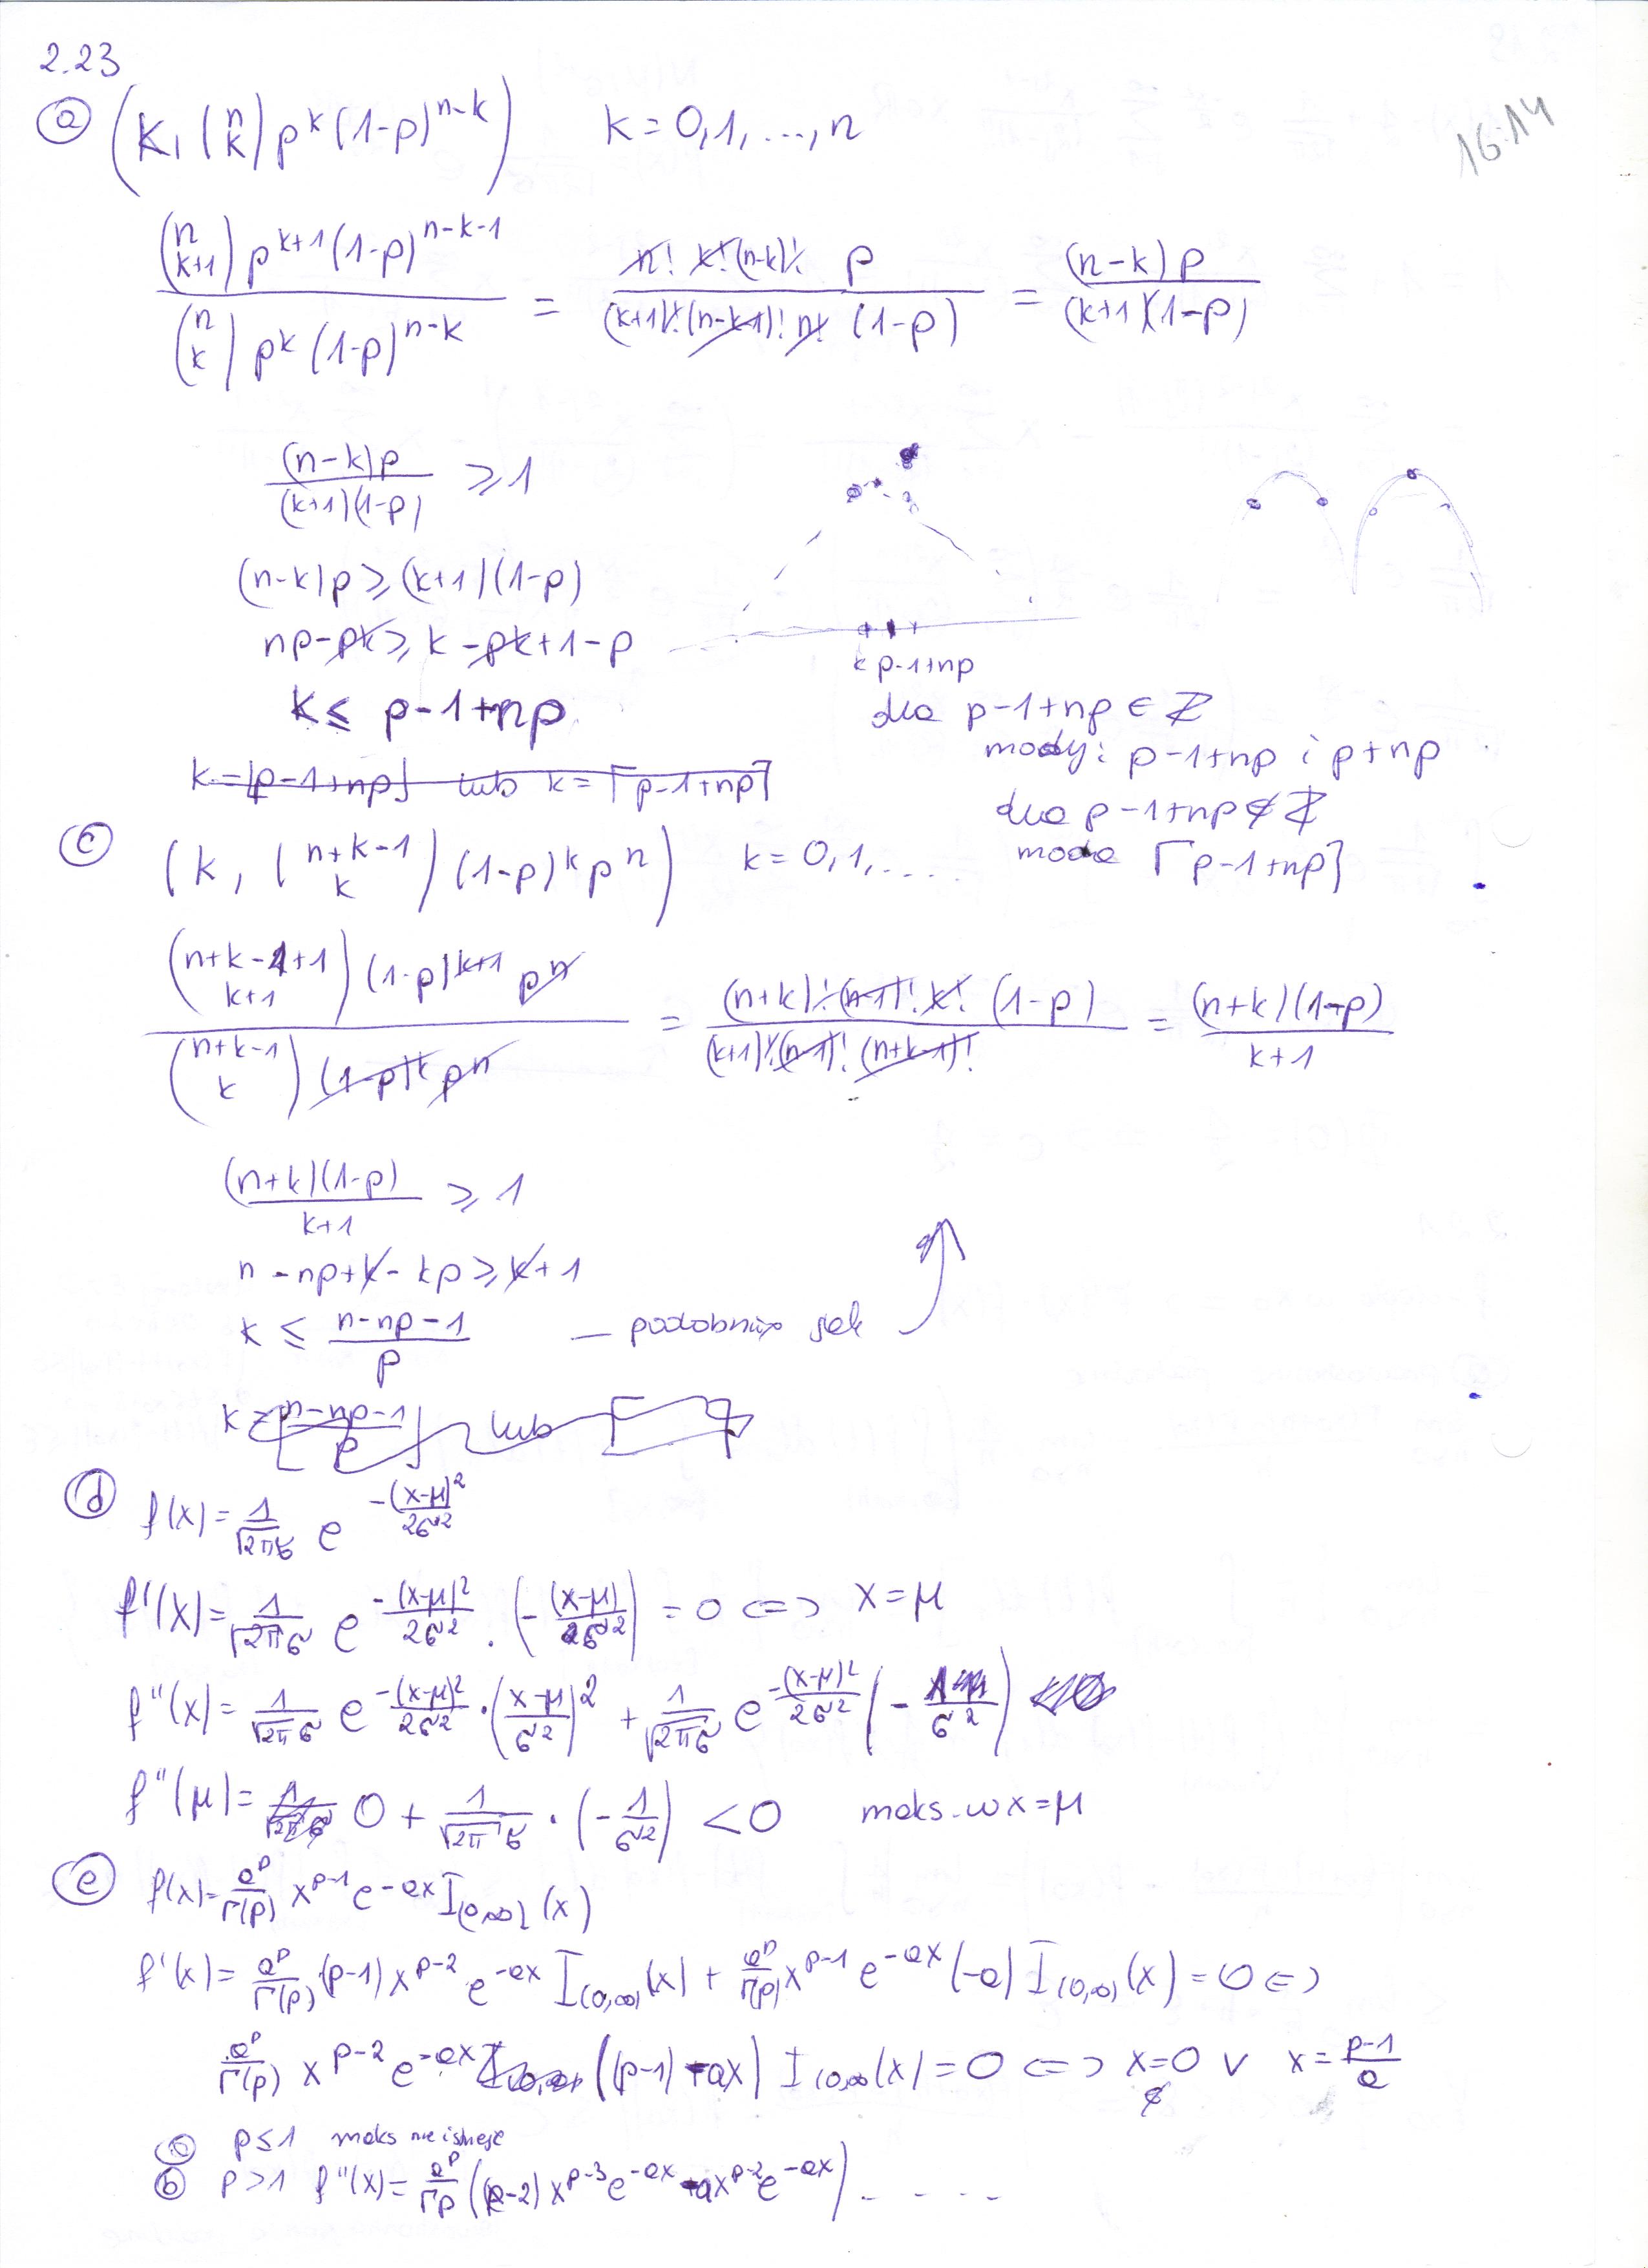 2.23
16.14
ⓐ (k, (n k) p^k (1-p)^{n-k}) k = 0,1,...,n
\frac{(n k+1) p^{k+1} (1-p)^{n-k-1}}{(n k) p^k (1-p)^{n-k}} = \frac{n! k! (n-k)! p}{(k+1)! (n-k-1)! n! (1-p)} = \frac{(n-k) p}{(k+1)(1-p)}
\frac{(n-k)p}{(k+1)(1-p)} ⩾ 1
(n-k)p ⩾ (k+1)(1-p)
np - pk ⩾ k - pk + 1 - p
k p-1+np
k ⩽ p-1+np
dla p-1+np ∈ Z
mody: p-1+np i p+np
k = ⌊p-1+np⌋ lub k = ⌈p-1+np⌉
dla p-1+np ∉ Z
moda ⌈p-1+np⌉
ⓒ (k, (n+k-1 k) (1-p)^k p^n) k = 0,1,....
\frac{(n+k-1+1 k+1) (1-p)^{k+1} p^n}{(n+k-1 k) (1-p)^k p^n} = \frac{(n+k)! (n-1)! k! (1-p)}{(k+1)! (n-1)! (n+k-1)!} = \frac{(n+k)(1-p)}{k+1}
\frac{(n+k)(1-p)}{k+1} ⩾ 1
n - np + k - kp ⩾ k + 1
k ⩽ \frac{n-np-1}{p} — podobnie jak
k = ⌊\frac{n-np-1}{p}⌋ lub ⌈ ⌉
ⓓ f(x) = \frac{1}{\sqrt{2π}σ} e^{-\frac{(x-μ)^2}{2σ^2}}
f'(x) = \frac{1}{\sqrt{2π}σ} e^{-\frac{(x-μ)^2}{2σ^2}} · (-\frac{(x-μ)}{σ^2}) = 0 <=> x = μ
f''(x) = \frac{1}{\sqrt{2π}σ} e^{-\frac{(x-μ)^2}{2σ^2}} · (\frac{x-μ}{σ^2})^2 + \frac{1}{\sqrt{2π}σ} e^{-\frac{(x-μ)^2}{2σ^2}} (-\frac{1}{σ^2})
f''(μ) = 0 + \frac{1}{\sqrt{2π}σ} · (-\frac{1}{σ^2}) < 0 maks. w x = μ
ⓔ f(x) = \frac{a^p}{Γ(p)} x^{p-1} e^{-ax} I_{(0,∞)}(x)
f'(x) = \frac{a^p}{Γ(p)} (p-1) x^{p-2} e^{-ax} I_{(0,∞)}(x) + \frac{a^p}{Γ(p)} x^{p-1} e^{-ax} (-a) I_{(0,∞)}(x) = 0 <=>
\frac{a^p}{Γ(p)} x^{p-2} e^{-ax} ((p-1) - ax) I_{(0,∞)}(x) = 0 <=> x = 0 ∨ x = \frac{p-1}{a}
ⓐ p ≤ 1 maks nie istnieje
ⓑ p > 1 f''(x) = \frac{a^p}{Γp} ((p-2) x^{p-3} e^{-ax} - ax^{p-2} e^{-ax}) - - - -